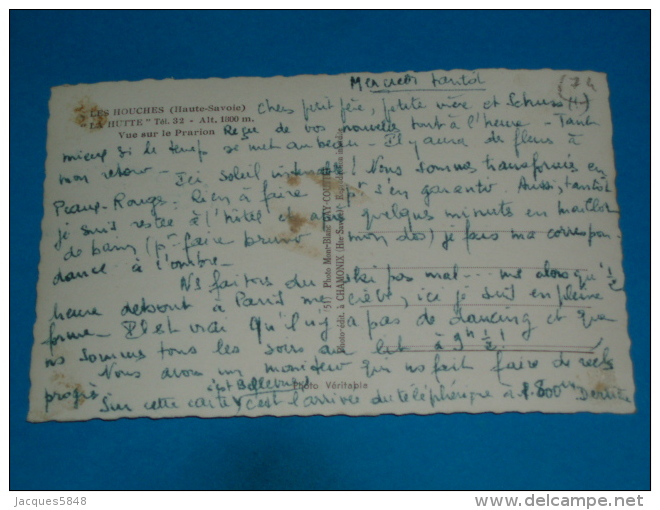 Mercredi tantôt
74
LES HOUCHES (Haute-Savoie)
"LA HUTTE" Tél. 32 - Alt. 1800 m.
Vue sur le Prarion
Chers petit père, petite mère et
Reçu de vos nouvelles tout à l'heure - Tant
mieux si le temps se met au beau - Il y aura de fleurs à
mon retour - Ici soleil intense ! Nous sommes transformés en
Peaux-Rouges: rien à faire pr s'en garantir. Aussi, tantôt
je suis restée à l'hôtel et après quelques minutes en maillot
de bain (pr faire brunir mon dos) je fais ma correspon-
dance à l'ombre -
Ns faisons du ski pas mal... mais alors qu'1/2
heure debout à Paris me crève, ici je suis en pleine
forme - Il est vrai qu'il n'y a pas de dancing et que
ns sommes tous les soirs au lit à 9h 1/2 !
Nous avons un moniteur qui ns fait faire de réels
progrès
c'est Bellevue
Sur cette carte c'est l'arrivée du téléphérique à 1.800m Derrière
51 Photo Mont-Blanc GAY-COUTTET
Photo-édit. à CHAMONIX (Hte-Savoie)
Photo Véritable
Jacques5848
www.delcampe.net